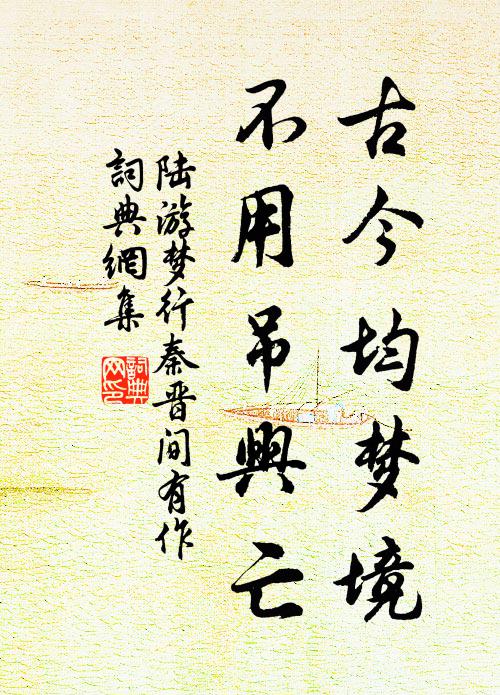 古今均梦境
不用吊興亡
陆游梦行秦晋间有作
詞典網集
詞典網印